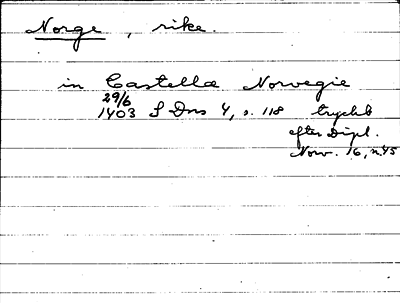 Norge, rike.
in Castella Norvegie
29/6
1403 S Dns 4, s. 118 tryckt
efter Dipl.
Norv. 16, n. 45